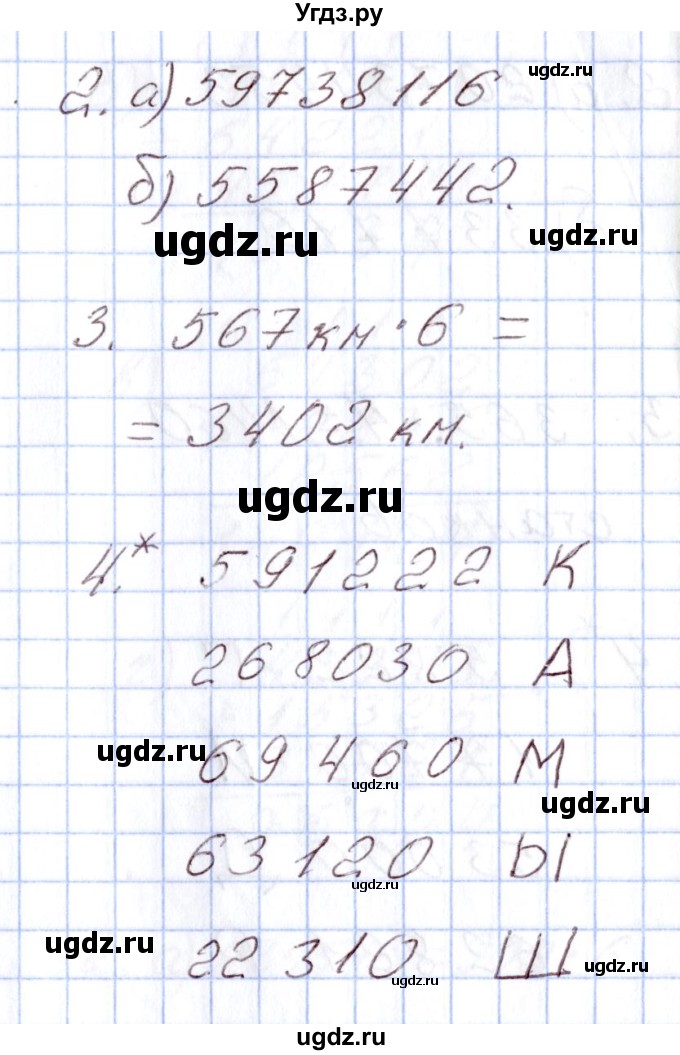 Угдз.ру
ugdz.ru
2. а) 59738116
б) 5587442.
ugdz.ru
ugdz.ru
3. 567 км · 6 =
= 3402 км.
ugdz.ru
4.* 591222 К
268030 А
ugdz.ru
69460 М
ugdz.ru
ugdz.ru
63120 Ы
ugdz.ru
ugdz.ru
22310 Ш
ugdz.ru
ugdz.ru
ugdz.ru